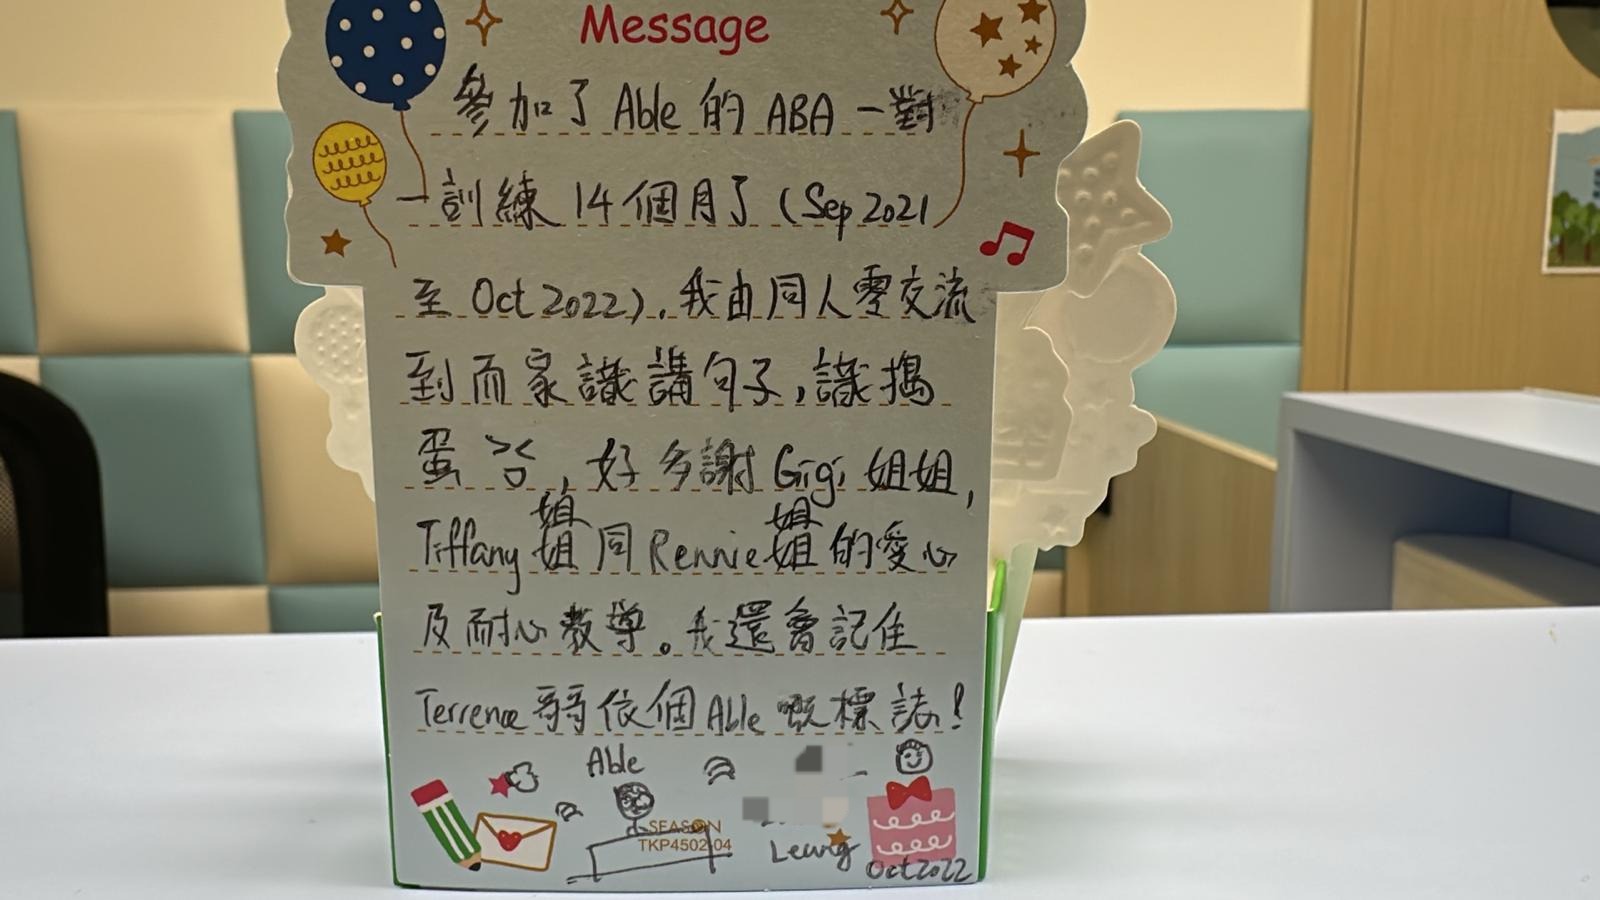 Message
參加了 Able 的 ABA 一對
一訓練 14個月了 (Sep 2021
至 Oct 2022). 我由同人零交流
到而家識講句子,識搗
蛋 , 好多謝 Gigi 姐姐,
Tiffany 姐姐 同 Rennie 姐姐 的愛心
及耐心教導。我還會記住
Terrence 哥哥 依個 Able 嘅標誌!
Able
SEASON
TKP4502-04
Leung
Oct 2022